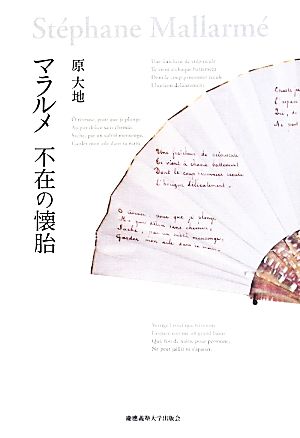 Stéphane Mallarmé
原 大地
マラルメ 不在の懐胎
Une fraîcheur de crépuscule
Te vient à chaque battement
Dont le coup prisonnier recule
L'horizon délicatement.
Ô rêveuse, pour que je plonge
Au pur délice sans chemin,
Sache, par un subtil mensonge,
Garder mon aile dans ta main.
Une fraîcheur de crépuscule
Te vient à chaque battement
Dont le coup prisonnier recule
L'horizon délicatement.
O rêveuse, pour que je plonge
Au pur délice sans chemin,
Sache, par un subtil mensonge,
Garder mon aile dans ta main.
慶應義塾大学出版会